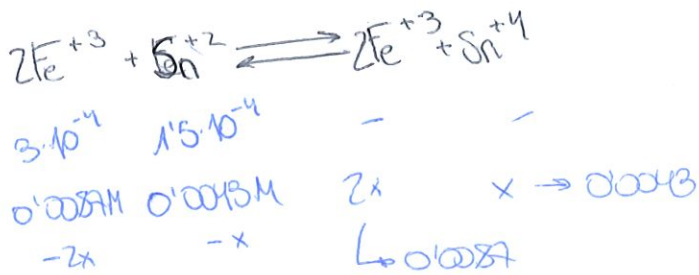 2Fe⁺³ + Sn⁺² ⇌ 2Fe⁺³ + Sn⁺⁴
3·10⁻⁴ 1'5·10⁻⁴ - -
0'0087M 0'0043M 2x x → 0'0043
-2x -x ↳ 0'0087